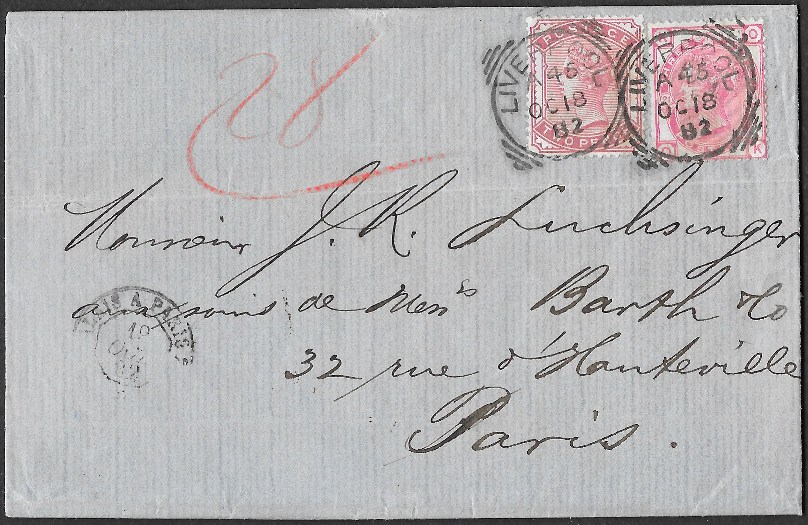 28
POSTAGE
TWO PE
LIVERPOOL
A 46
OC 18
82
LIVERPOOL
A 45
OC 18
82
O
K
Monsieur J. R. Luchsinger
aux soins de Mess^rs Barth & Co
32 rue d'Hauteville
Paris.
CALAIS A PARIS
19
OCT
82